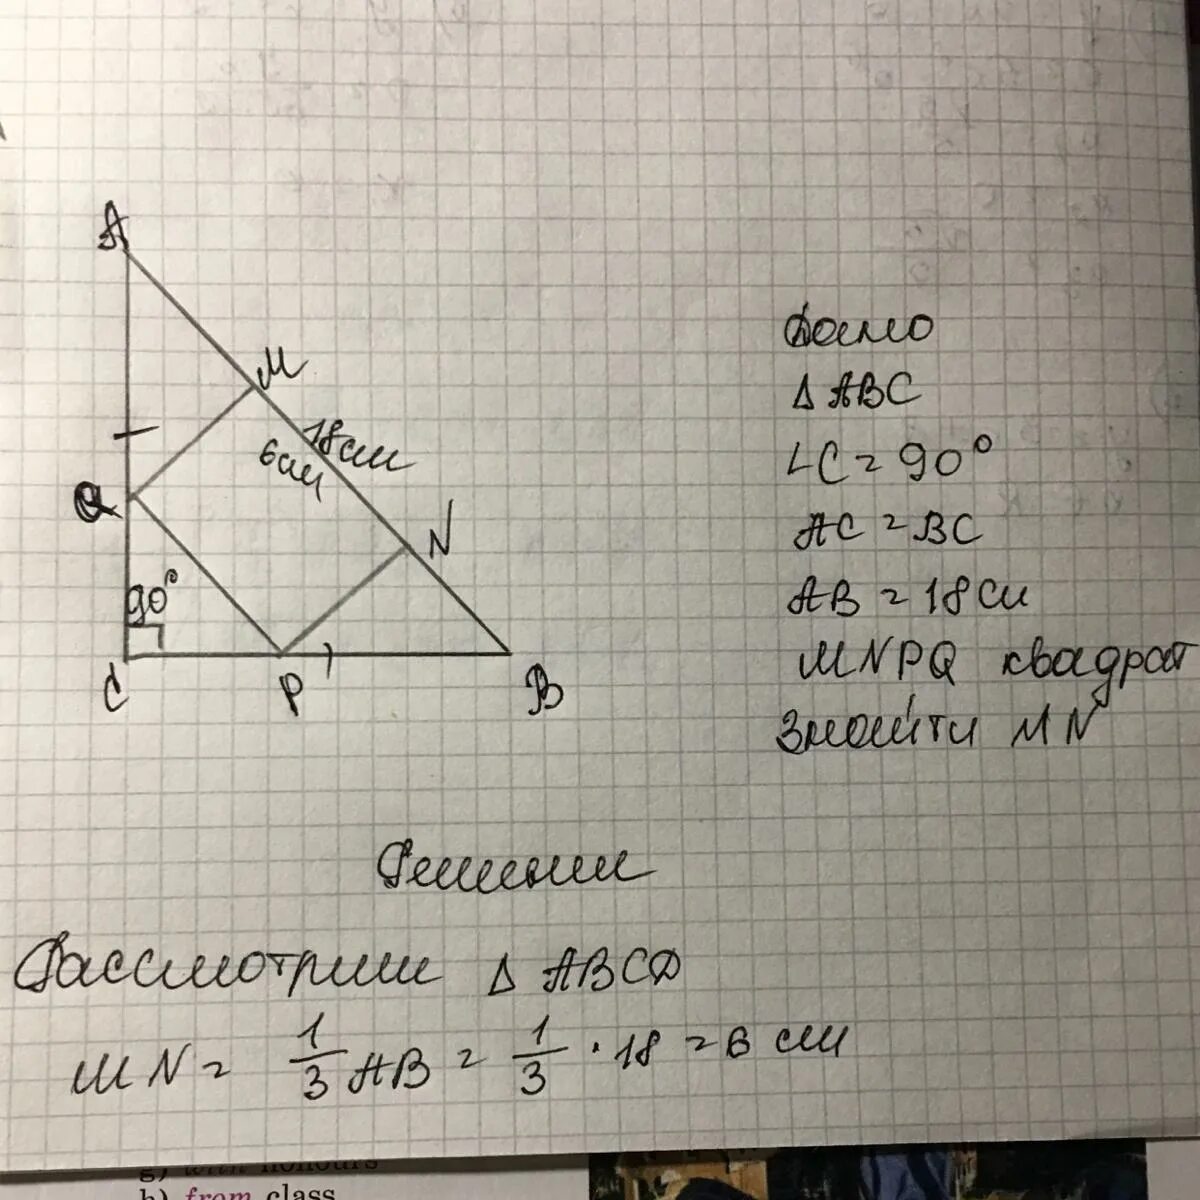 A
M
18см
6см
Q
N
90°
C
P
B
Дано
Δ ABC
∠C = 90°
AC = BC
AB = 18 см
MNPQ квадрат
Знайти MN
Рассмотрим Δ ABCD
MN = 1/3 AB = 1/3 · 18 = 6 см
g) with honours
h) from class